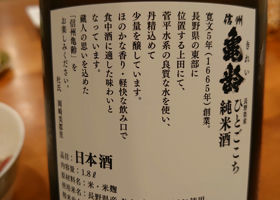 信州
亀齢
きれい
長野県産
ひとごこち
純米酒
寛文5年(1665年)創業、
長野県の東部に
位置する上田にて、
菅平水系の良質な水を使い、
丹精込めて
少量を醸しています。
ほのかな香り・軽快な飲み口で
食中酒に適した味わいと
なっています。
蔵人の思いを込めた
「信州亀齢」を
お楽しみください。
杜氏 岡崎美都里
品目:日本酒
内容量:1.8ℓ
原材料名:米・米麹